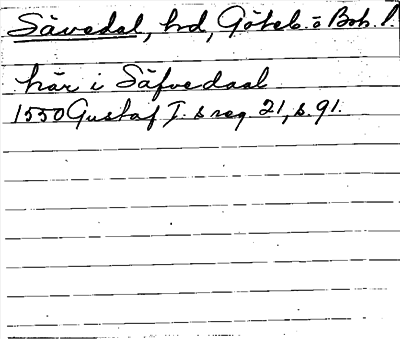 Sävedal, hd, Göteb. o Boh. l.
här i Säfvedaal
1550 Gustaf I:s reg. 21, s. 91.